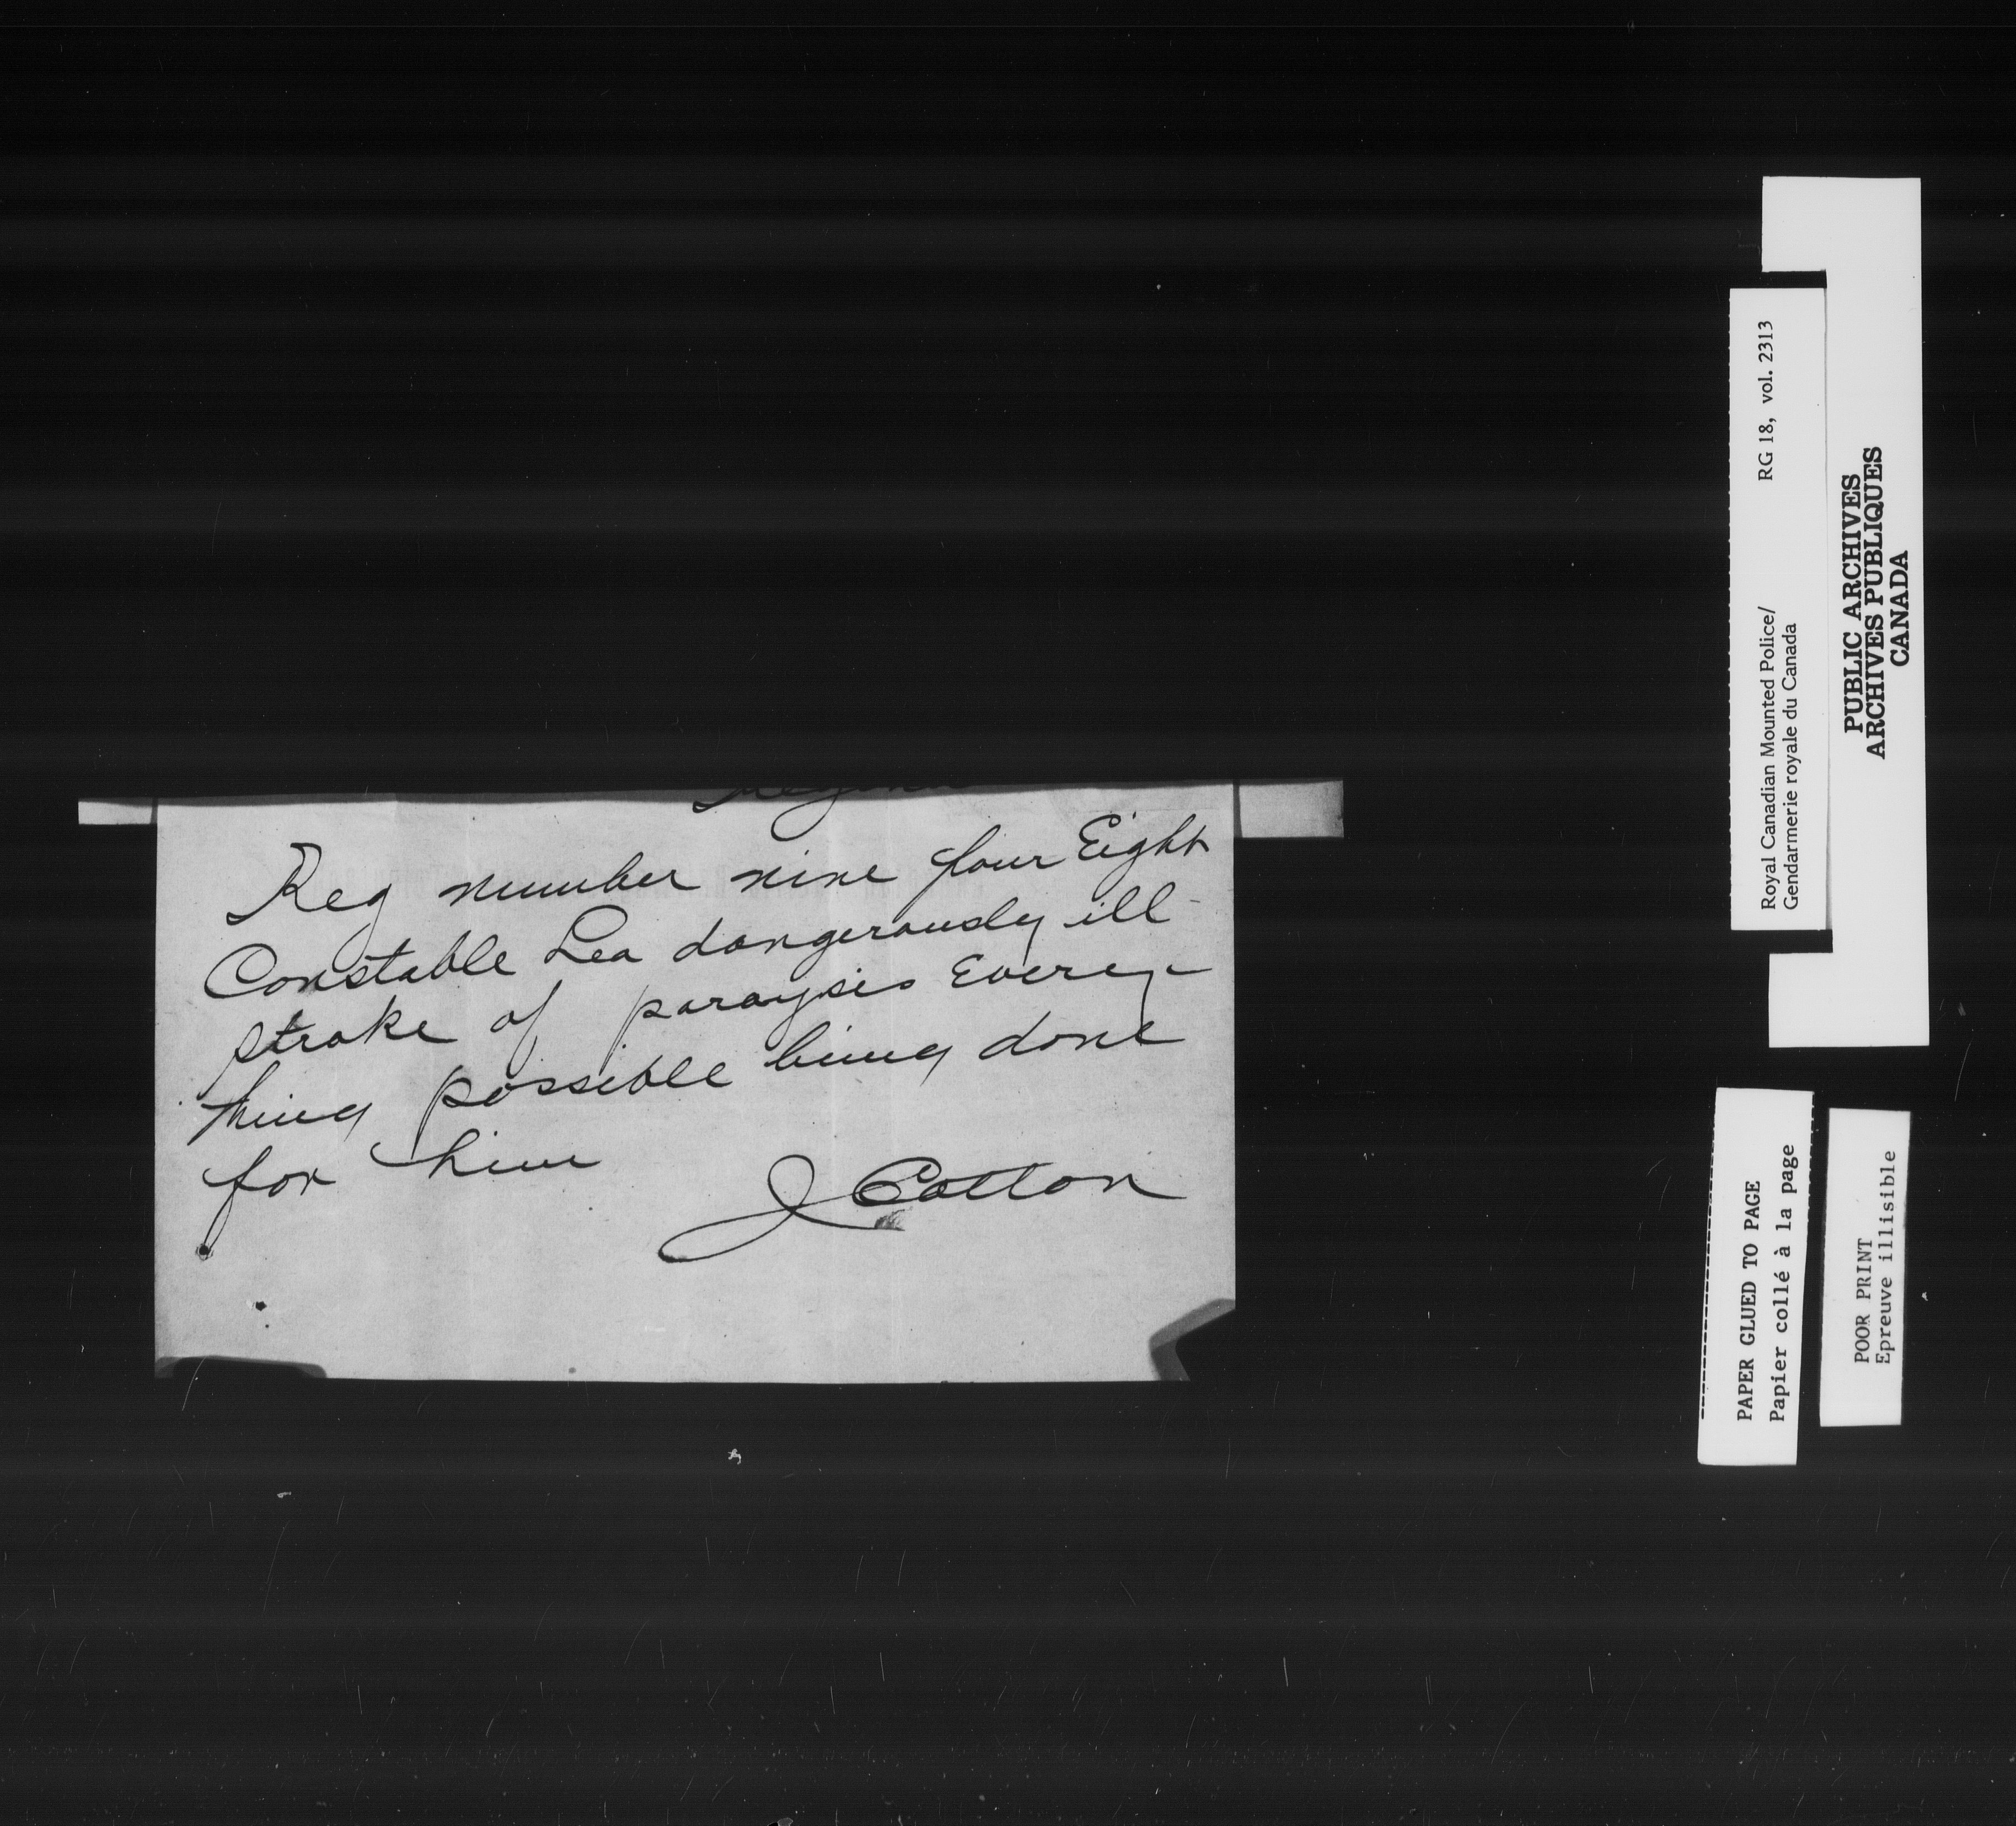 Regina
Reg number nine four Eight
Constable Lea dangerously ill
stroke of paraysis Every
thing possible being done
for him
J Cotton
Royal Canadian Mounted Police/ RG 18, vol. 2313
Gendarmerie royale du Canada
PUBLIC ARCHIVES
ARCHIVES PUBLIQUES
CANADA
PAPER GLUED TO PAGE
Papier collé à la page
POOR PRINT
Epreuve illisible